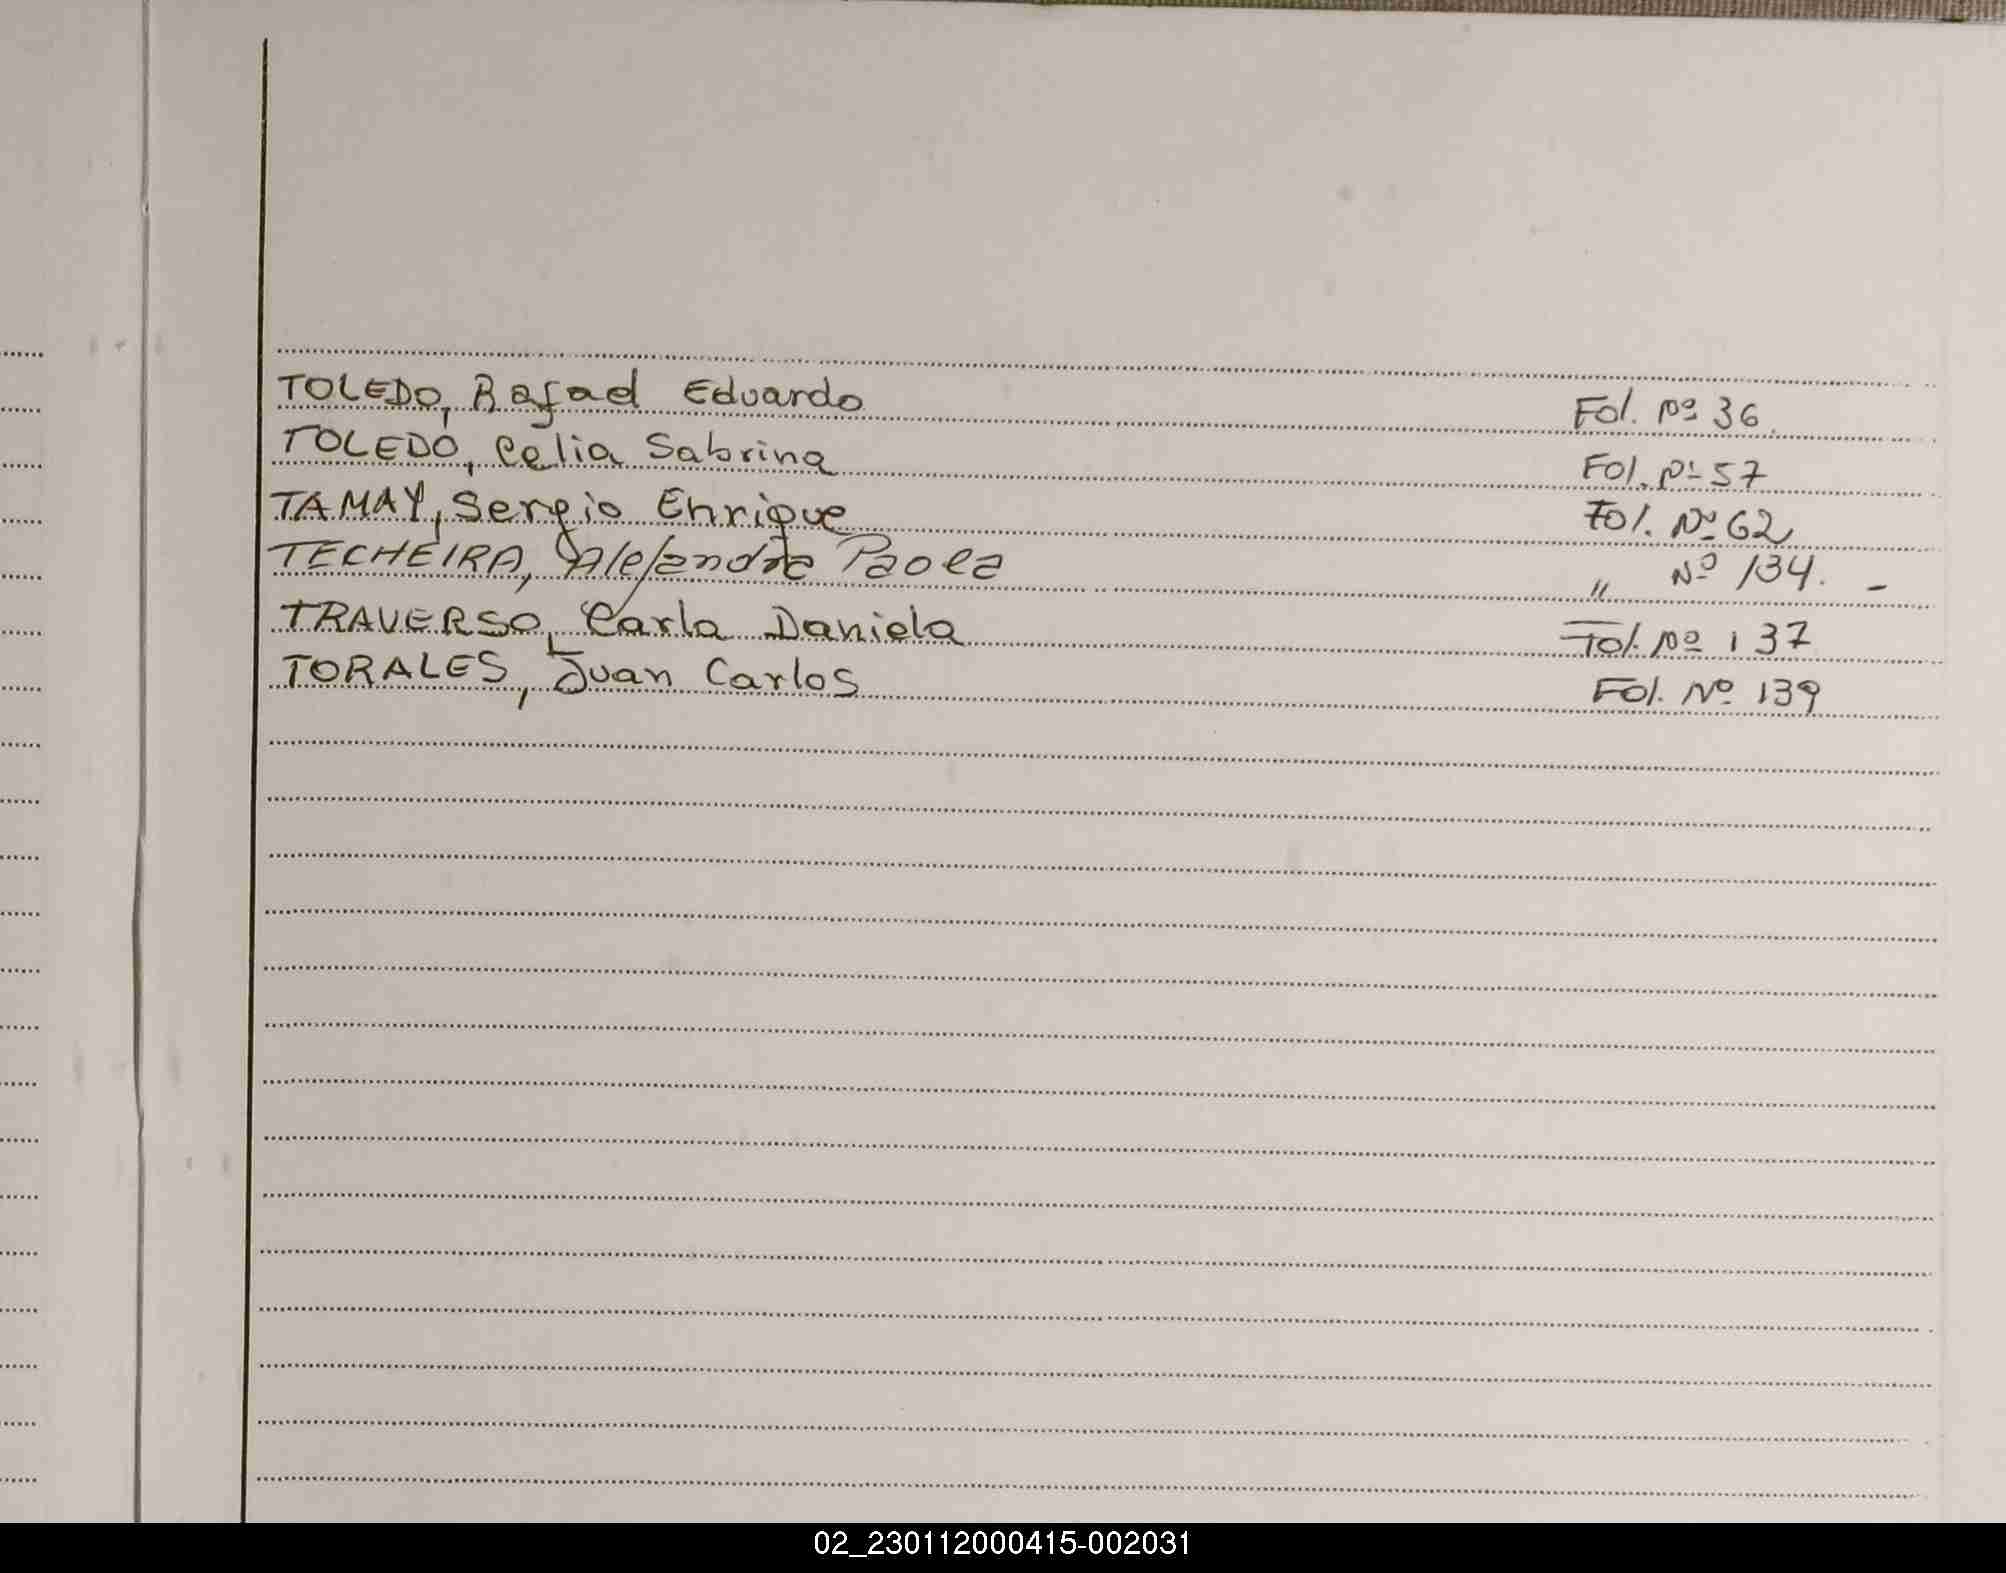 TOLEDO, Rafael Eduardo Fol. Nº 36
TOLEDO, Celia Sabrina Fol. Nº 57
TAMAY, Sergio Enrique Fol. Nº 62
TECHEIRA, Alejandra Paola " Nº 134. -
TRAVERSO, Carla Daniela Fol. Nº 137
TORALES, Juan Carlos Fol. Nº 139
02_230112000415-002031